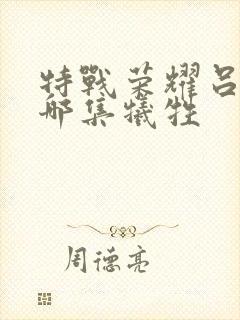 特戰荣耀吕
哪集犧牲
周德亮